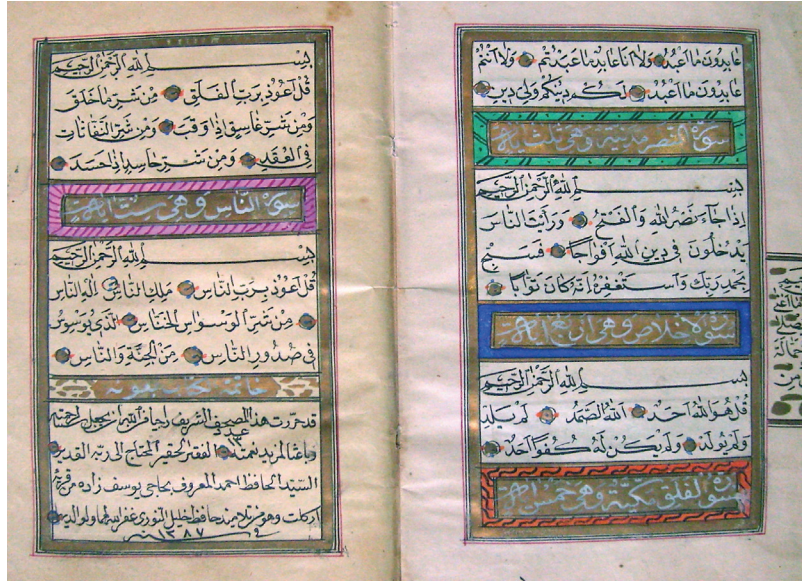 عَابِدُونَ مَا اَعْبُدُ وَلَا اَنَا عَابِدٌ مَا عَبَدْتُمْ وَلَا اَنْتُمْ
عَابِدُونَ مَا اَعْبُدُ لَكُمْ دِينُكُمْ وَلِيَ دِينِ
سورة النصر مدنية وهى ثلث ايات
بِسْمِ اللهِ الرَّحْمٰنِ الرَّحِيمِ
اِذَا جَاءَ نَصْرُ اللهِ وَالْفَتْحُ وَرَاَيْتَ النَّاسَ
يَدْخُلُونَ فِى دِينِ اللهِ اَفْوَاجًا فَسَبِّحْ
بِحَمْدِ رَبِّكَ وَاسْتَغْفِرْهُ اِنَّهُ كَانَ تَوَّابًا
سورة الاخلاص وهى اربع ايات
بِسْمِ اللهِ الرَّحْمٰنِ الرَّحِيمِ
قُلْ هُوَ اللهُ اَحَدٌ اَللهُ الصَّمَدُ لَمْ يَلِدْ
وَلَمْ يُولَدْ وَلَمْ يَكُنْ لَهُ كُفُوًا اَحَدٌ
سورة الفلق مكية وهى خمس ايات
بِسْمِ اللهِ الرَّحْمٰنِ الرَّحِيمِ
قُلْ اَعُوذُ بِرَبِّ الْفَلَقِ مِنْ شَرِّ مَا خَلَقَ
وَمِنْ شَرِّ غَاسِقٍ اِذَا وَقَبَ وَمِنْ شَرِّ النَّفَّاثَاتِ
فِى الْعُقَدِ وَمِنْ شَرِّ حَاسِدٍ اِذَا حَسَدَ
سورة الناس وهى ست ايات
بِسْمِ اللهِ الرَّحْمٰنِ الرَّحِيمِ
قُلْ اَعُوذُ بِرَبِّ النَّاسِ مَلِكِ النَّاسِ اِلٰهِ النَّاسِ
مِنْ شَرِّ الْوَسْوَاسِ الْخَنَّاسِ الَّذِى يُوَسْوِسُ
فِى صُدُورِ النَّاسِ مِنَ الْجِنَّةِ وَالنَّاسِ
قد حررت هذا المصحف الشريف رجاء من الله ان يجعل
باعثا لمزيد نعمته الفقير الحقير المحتاج الى ربه القدير
السيد الحافظ احمد المعروف بحاجى يوسف زاده من قرية
اركات وهو من تلاميذ حافظ خليل النورى غفر الله لهما ولوالديهما
فى سنه ١٢٨٧